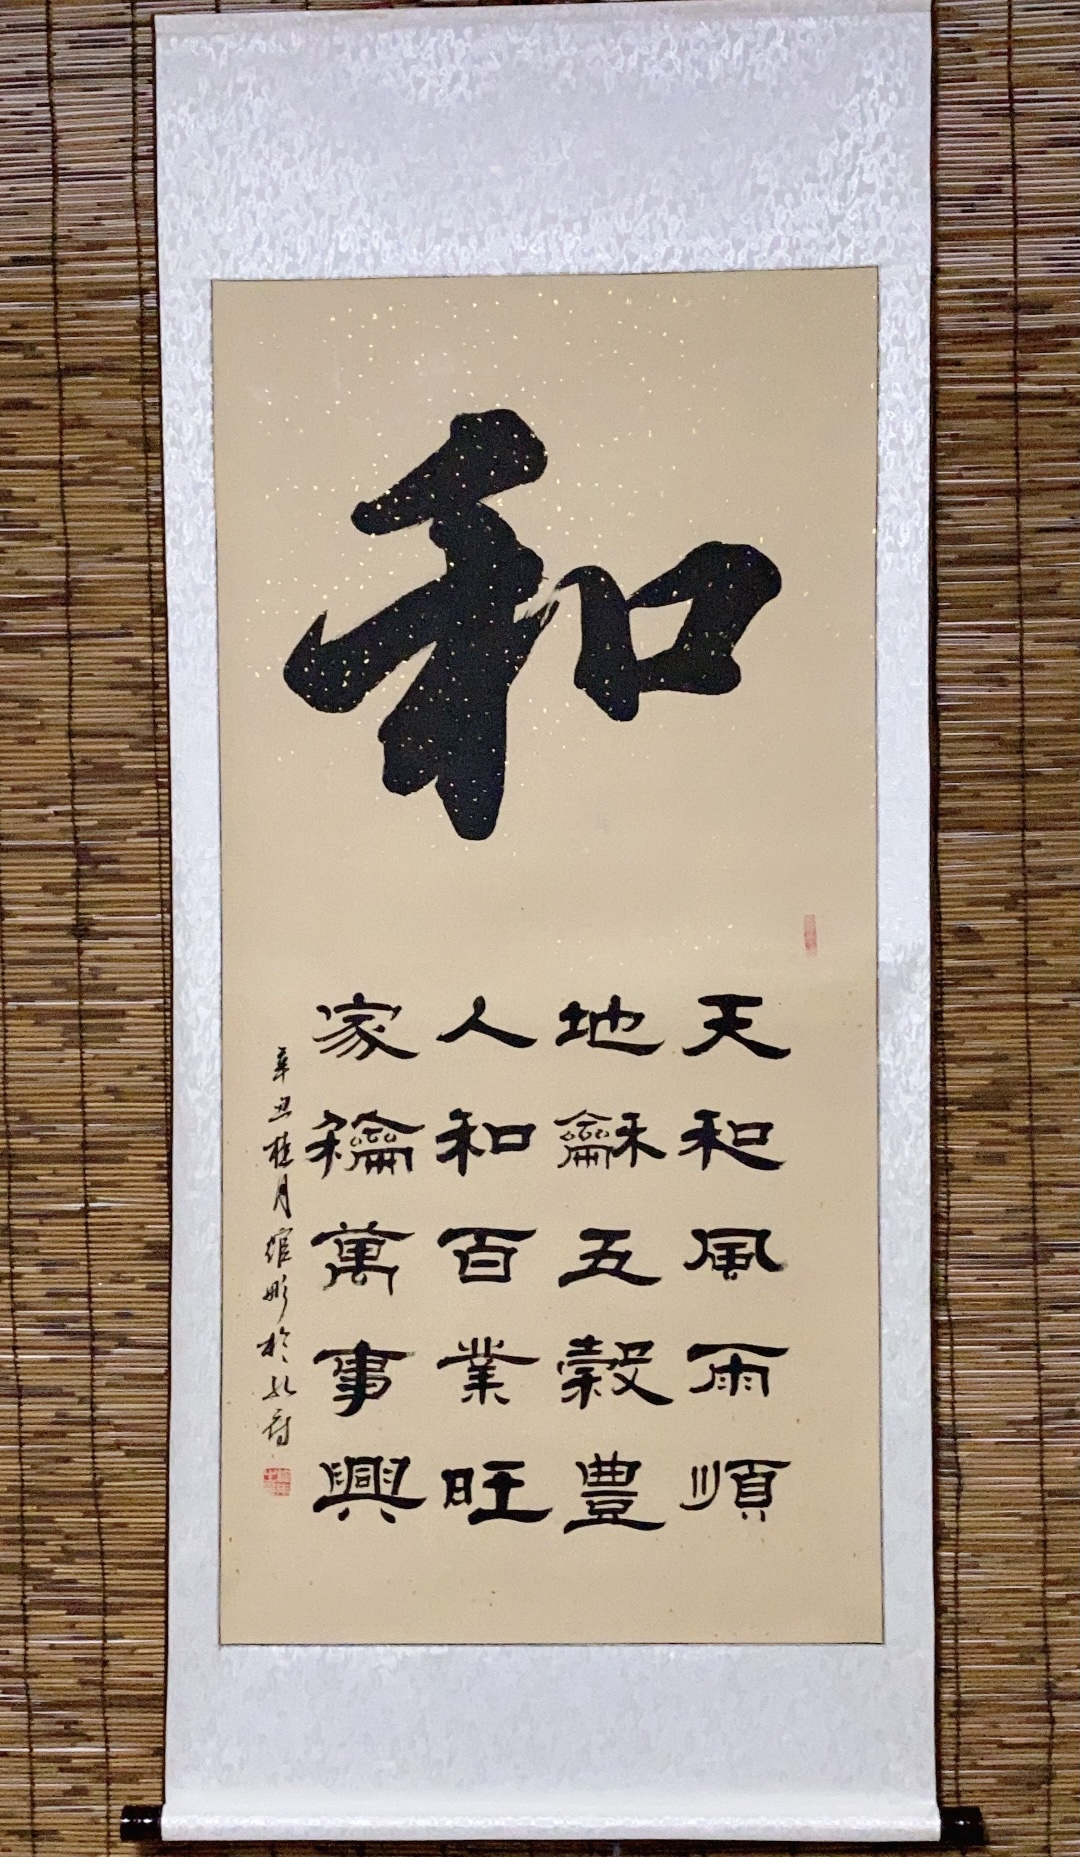 和
天和風雨順
地龢五穀豐
人和百業旺
家龢萬事興
辛丑桂月